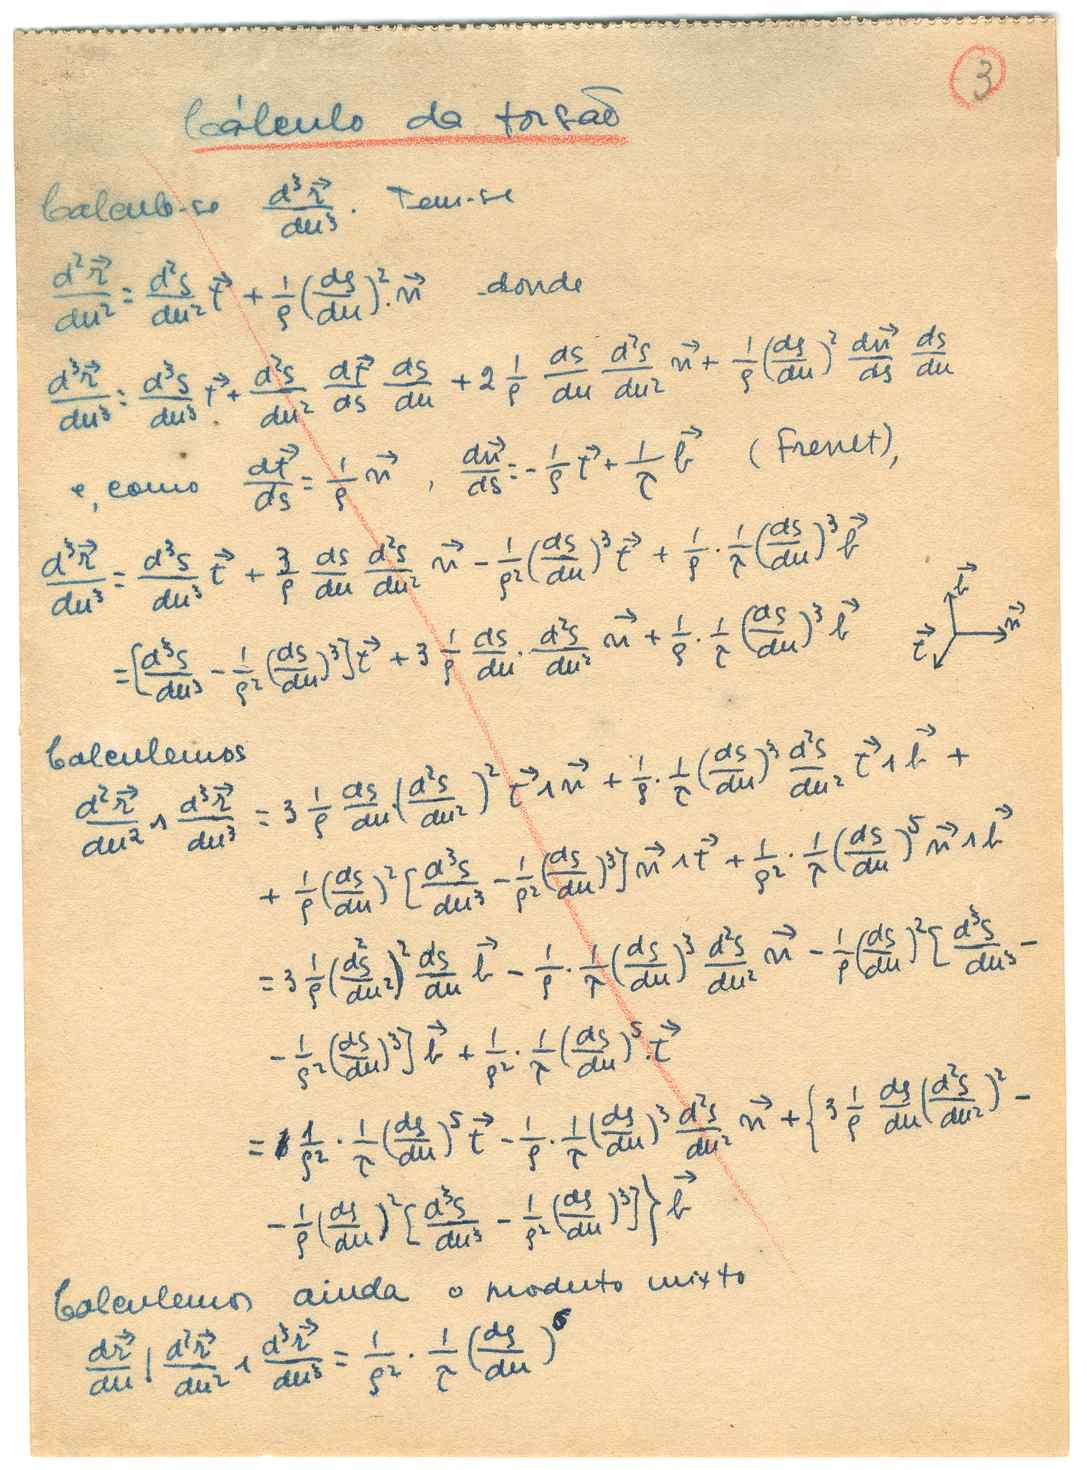 3
Cálculo da torsão
Calculo-se d³r⃗/du³. Tem-se
d²r⃗/du² = d²s/du² t⃗ + 1/ρ (ds/du)². n⃗ donde
d³r⃗/du³ = d³s/du³ t⃗ + d²s/du² dt⃗/ds ds/du + 2 1/ρ ds/du d²s/du² n⃗ + 1/ρ (ds/du)² dn⃗/ds ds/du
e, como dt⃗/ds = 1/ρ n⃗, dn⃗/ds = -1/ρ t⃗ + 1/τ b⃗ (Frenet),
d³r⃗/du³ = d³s/du³ t⃗ + 3/ρ ds/du d²s/du² n⃗ - 1/ρ² (ds/du)³ t⃗ + 1/ρ · 1/τ (ds/du)³ b⃗
= [d³s/du³ - 1/ρ² (ds/du)³] t⃗ + 3 1/ρ ds/du · d²s/du² n⃗ + 1/ρ · 1/τ (ds/du)³ b⃗
b⃗ n⃗ t⃗
Calculemos
d²r⃗/du² ∧ d³r⃗/du³ = 3 1/ρ ds/du (d²s/du²)² t⃗ ∧ n⃗ + 1/ρ · 1/τ (ds/du)³ d²s/du² t⃗ ∧ b⃗ +
+ 1/ρ (ds/du)² [d³s/du³ - 1/ρ² (ds/du)³] n⃗ ∧ t⃗ + 1/ρ² · 1/τ (ds/du)⁵ n⃗ ∧ b⃗
= 3 1/ρ (d²s/du²)² ds/du b⃗ - 1/ρ · 1/τ (ds/du)³ d²s/du² n⃗ - 1/ρ (ds/du)² [d³s/du³ -
- 1/ρ² (ds/du)³] b⃗ + 1/ρ² · 1/τ (ds/du)⁵ · t⃗
= 1/ρ² · 1/τ (ds/du)⁵ t⃗ - 1/ρ · 1/τ (ds/du)³ d²s/du² n⃗ + {3 1/ρ ds/du (d²s/du²)² -
- 1/ρ (ds/du)² [d³s/du³ - 1/ρ² (ds/du)³]} b⃗
Calculemos ainda o produto mixto
dr⃗/du | d²r⃗/du² ∧ d³r⃗/du³ = 1/ρ² · 1/τ (ds/du)⁶